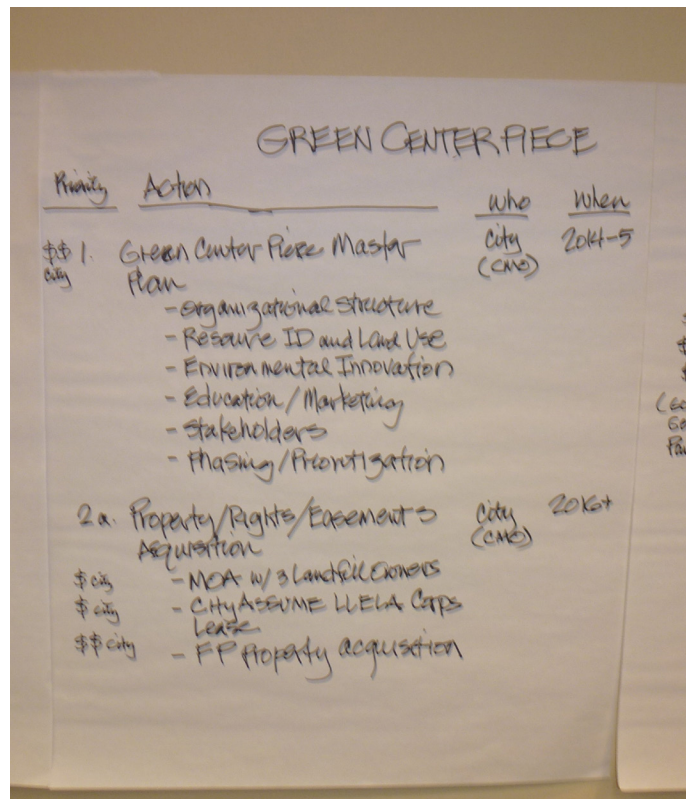 GREEN CENTERPIECE
Priority Action who when
$$ 1. Green Center Piece Master City 2014-5
city Plan (CMO)
- Organizational Structure
- Resource ID and Land Use
- Environmental Innovation
- Education/Marketing
- Stakeholders
- Phasing/Prioritization
2a. Property/Rights/Easements City 2016+
Acquisition (CMO)
$ city - MOA w/ 3 Landfill Owners
$ city - City ASSUME LLELA Corps
Lease
$$ city - FP Property acquisition
$
$
$